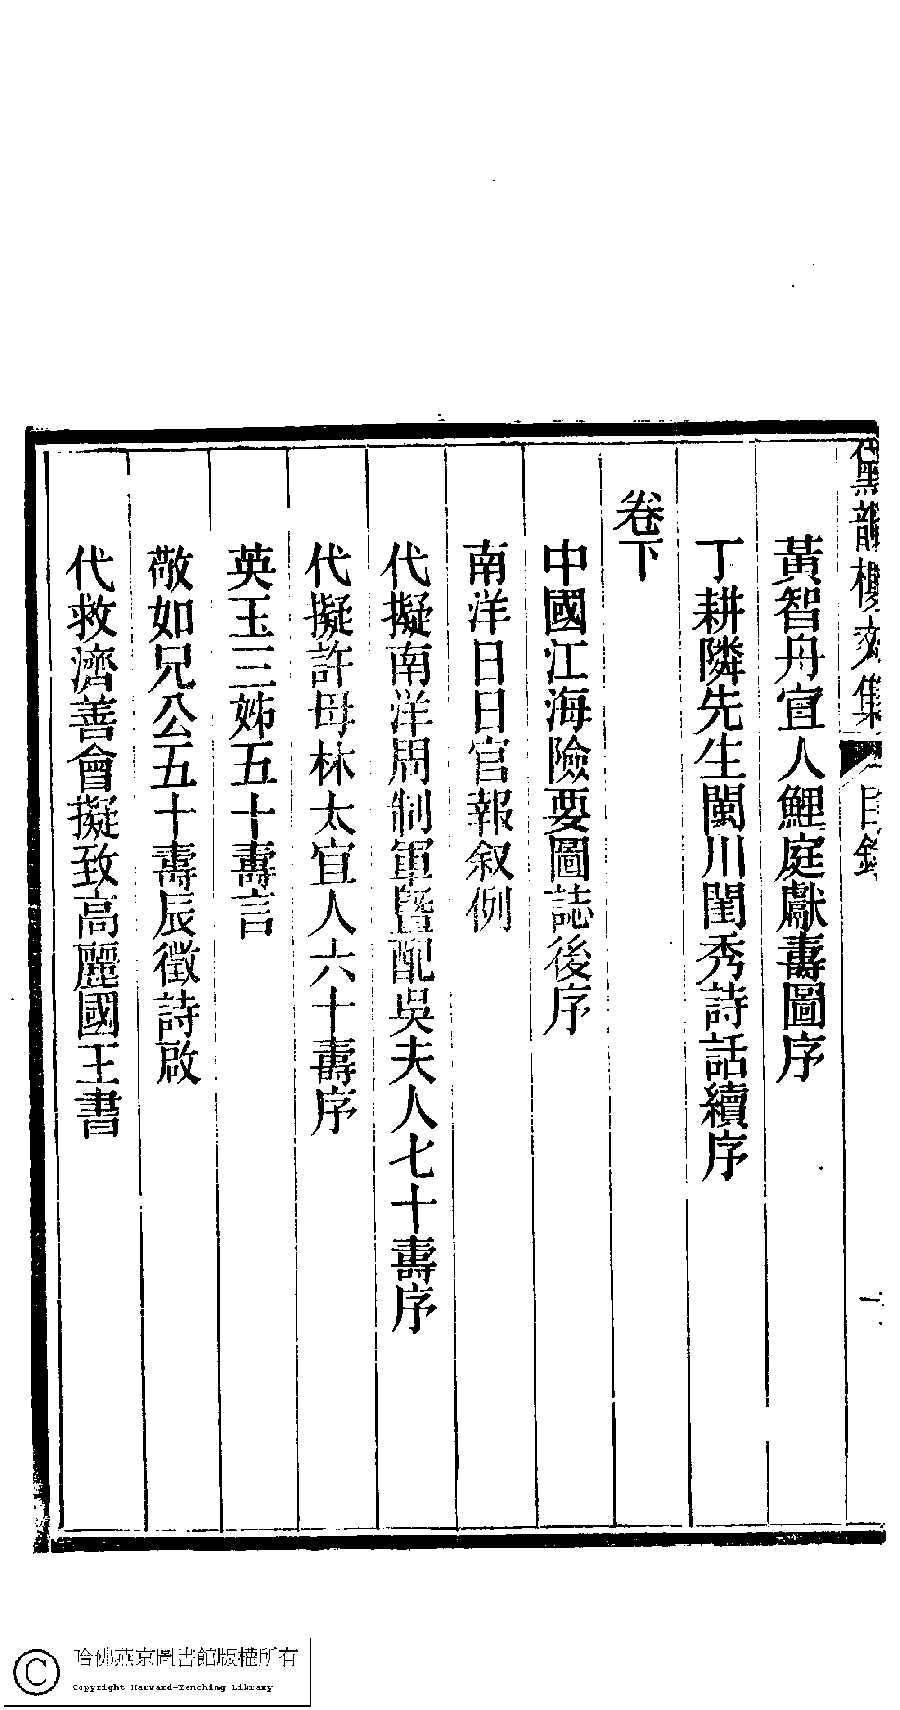 黛韻樓文集 目錄 一
黃智舟宜人鯉庭獻壽圖序
丁耕隣先生閩川閨秀詩話續序
卷下
中國江海險要圖誌後序
南洋日日官報叙例
代擬南洋周制軍曁配吳夫人七十壽序
代擬許母林太宜人六十壽序
英玉三姊五十壽言
敬如兄公五十壽辰徵詩啟
代救濟善會擬致高麗國王書
哈佛燕京圖書館版權所有
Copyright Harvard-Yenching Library